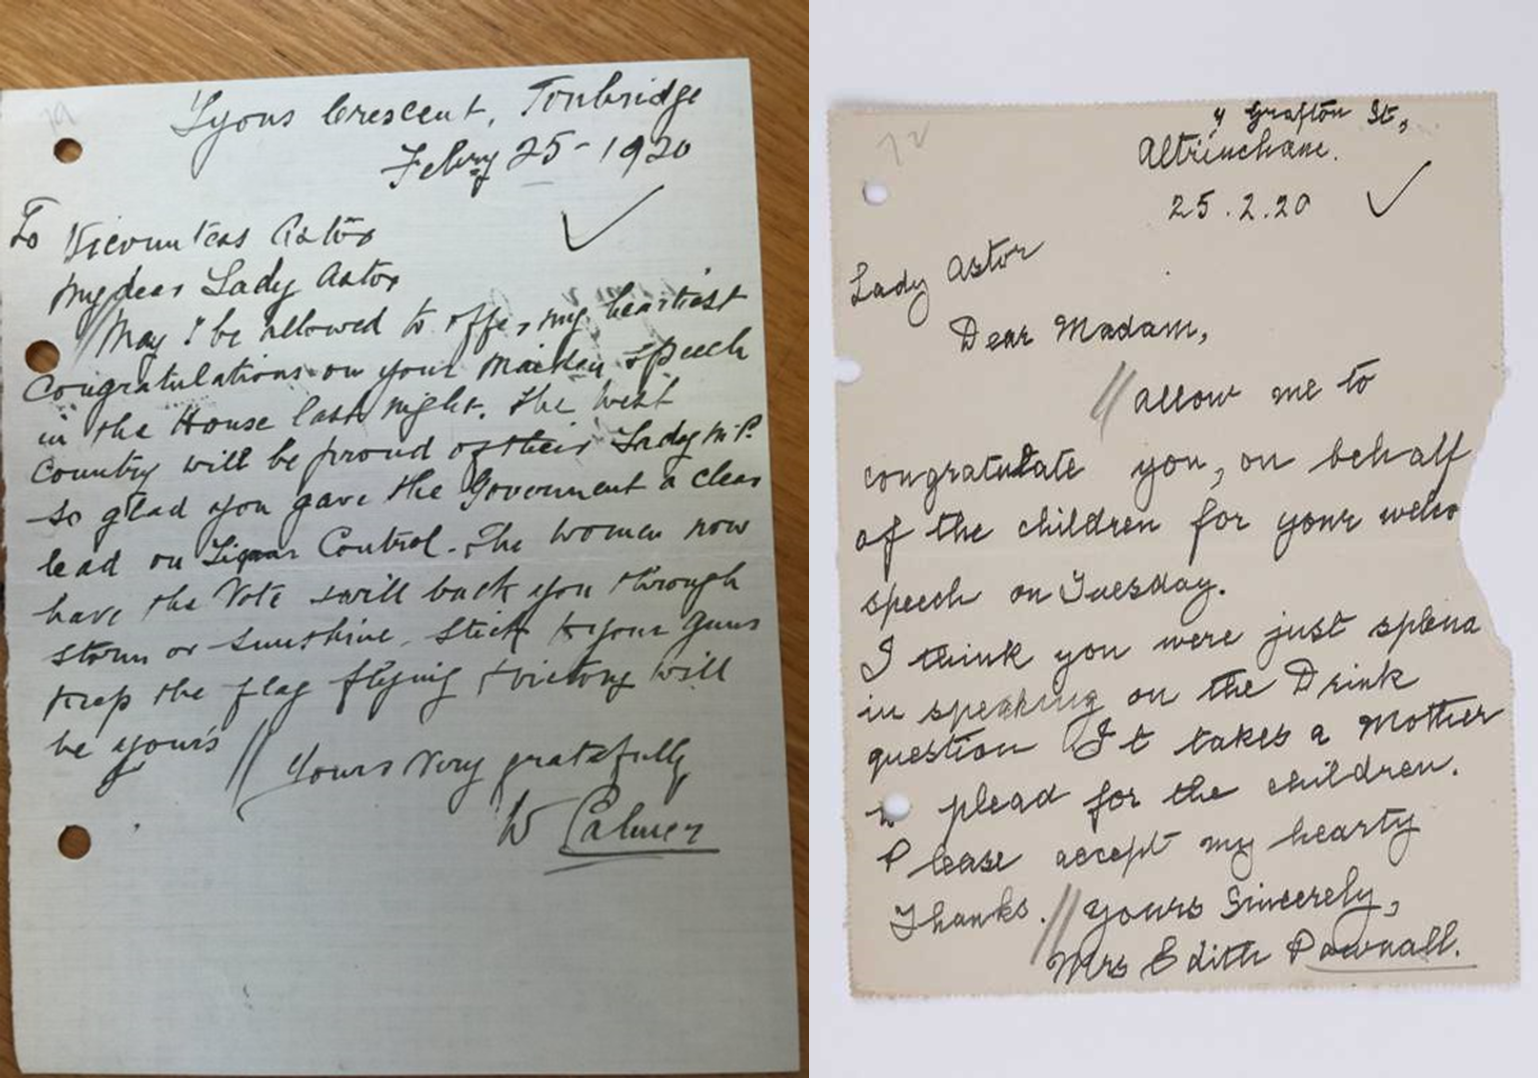 79
Lyons Crescent, Tonbridge
Febry 25 - 1920
To Viscountess Astor
My dear Lady Astor
May I be allowed to offer my heartiest
Congratulations on your Maiden Speech
in the House last night. The West
Country will be proud of their Lady M.P.
So glad you gave the Goverment a clear
lead on Liquor Control. The Women now
have the Vote & will back you through
storm or sunshine. Stick to your guns
keep the flag flying & victory will
be yours
Yours Very gratefully
W
72
4 Grafton St,
Altrincham.
25.2.20
Lady Astor
Dear Madam,
Allow me to
congratulate you, on behalf
of the children for your
speech on Tuesday.
I think you were just splend
in speaking on the Drink
question It takes a Mother
to plead for the children.
Please accept my hearty
Thanks. Yours Sincerely,
Mrs Edith Pownall.